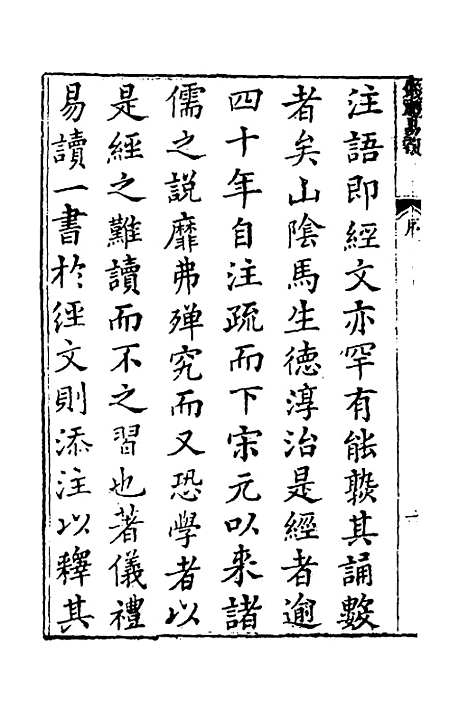 注語即經文亦罕有能毃其誦數
者矣山陰馬生德淳治是經者逾
四十年自注疏而下宋元以來諸
儒之說靡弗殫究而又恐學者以
是經之難讀而不之習也著儀禮
易讀一書於經文則添注以釋其
序
一